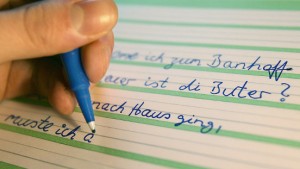 ich zum Banhoff
ist di Buter ?
nach Haus ging,
muste ich